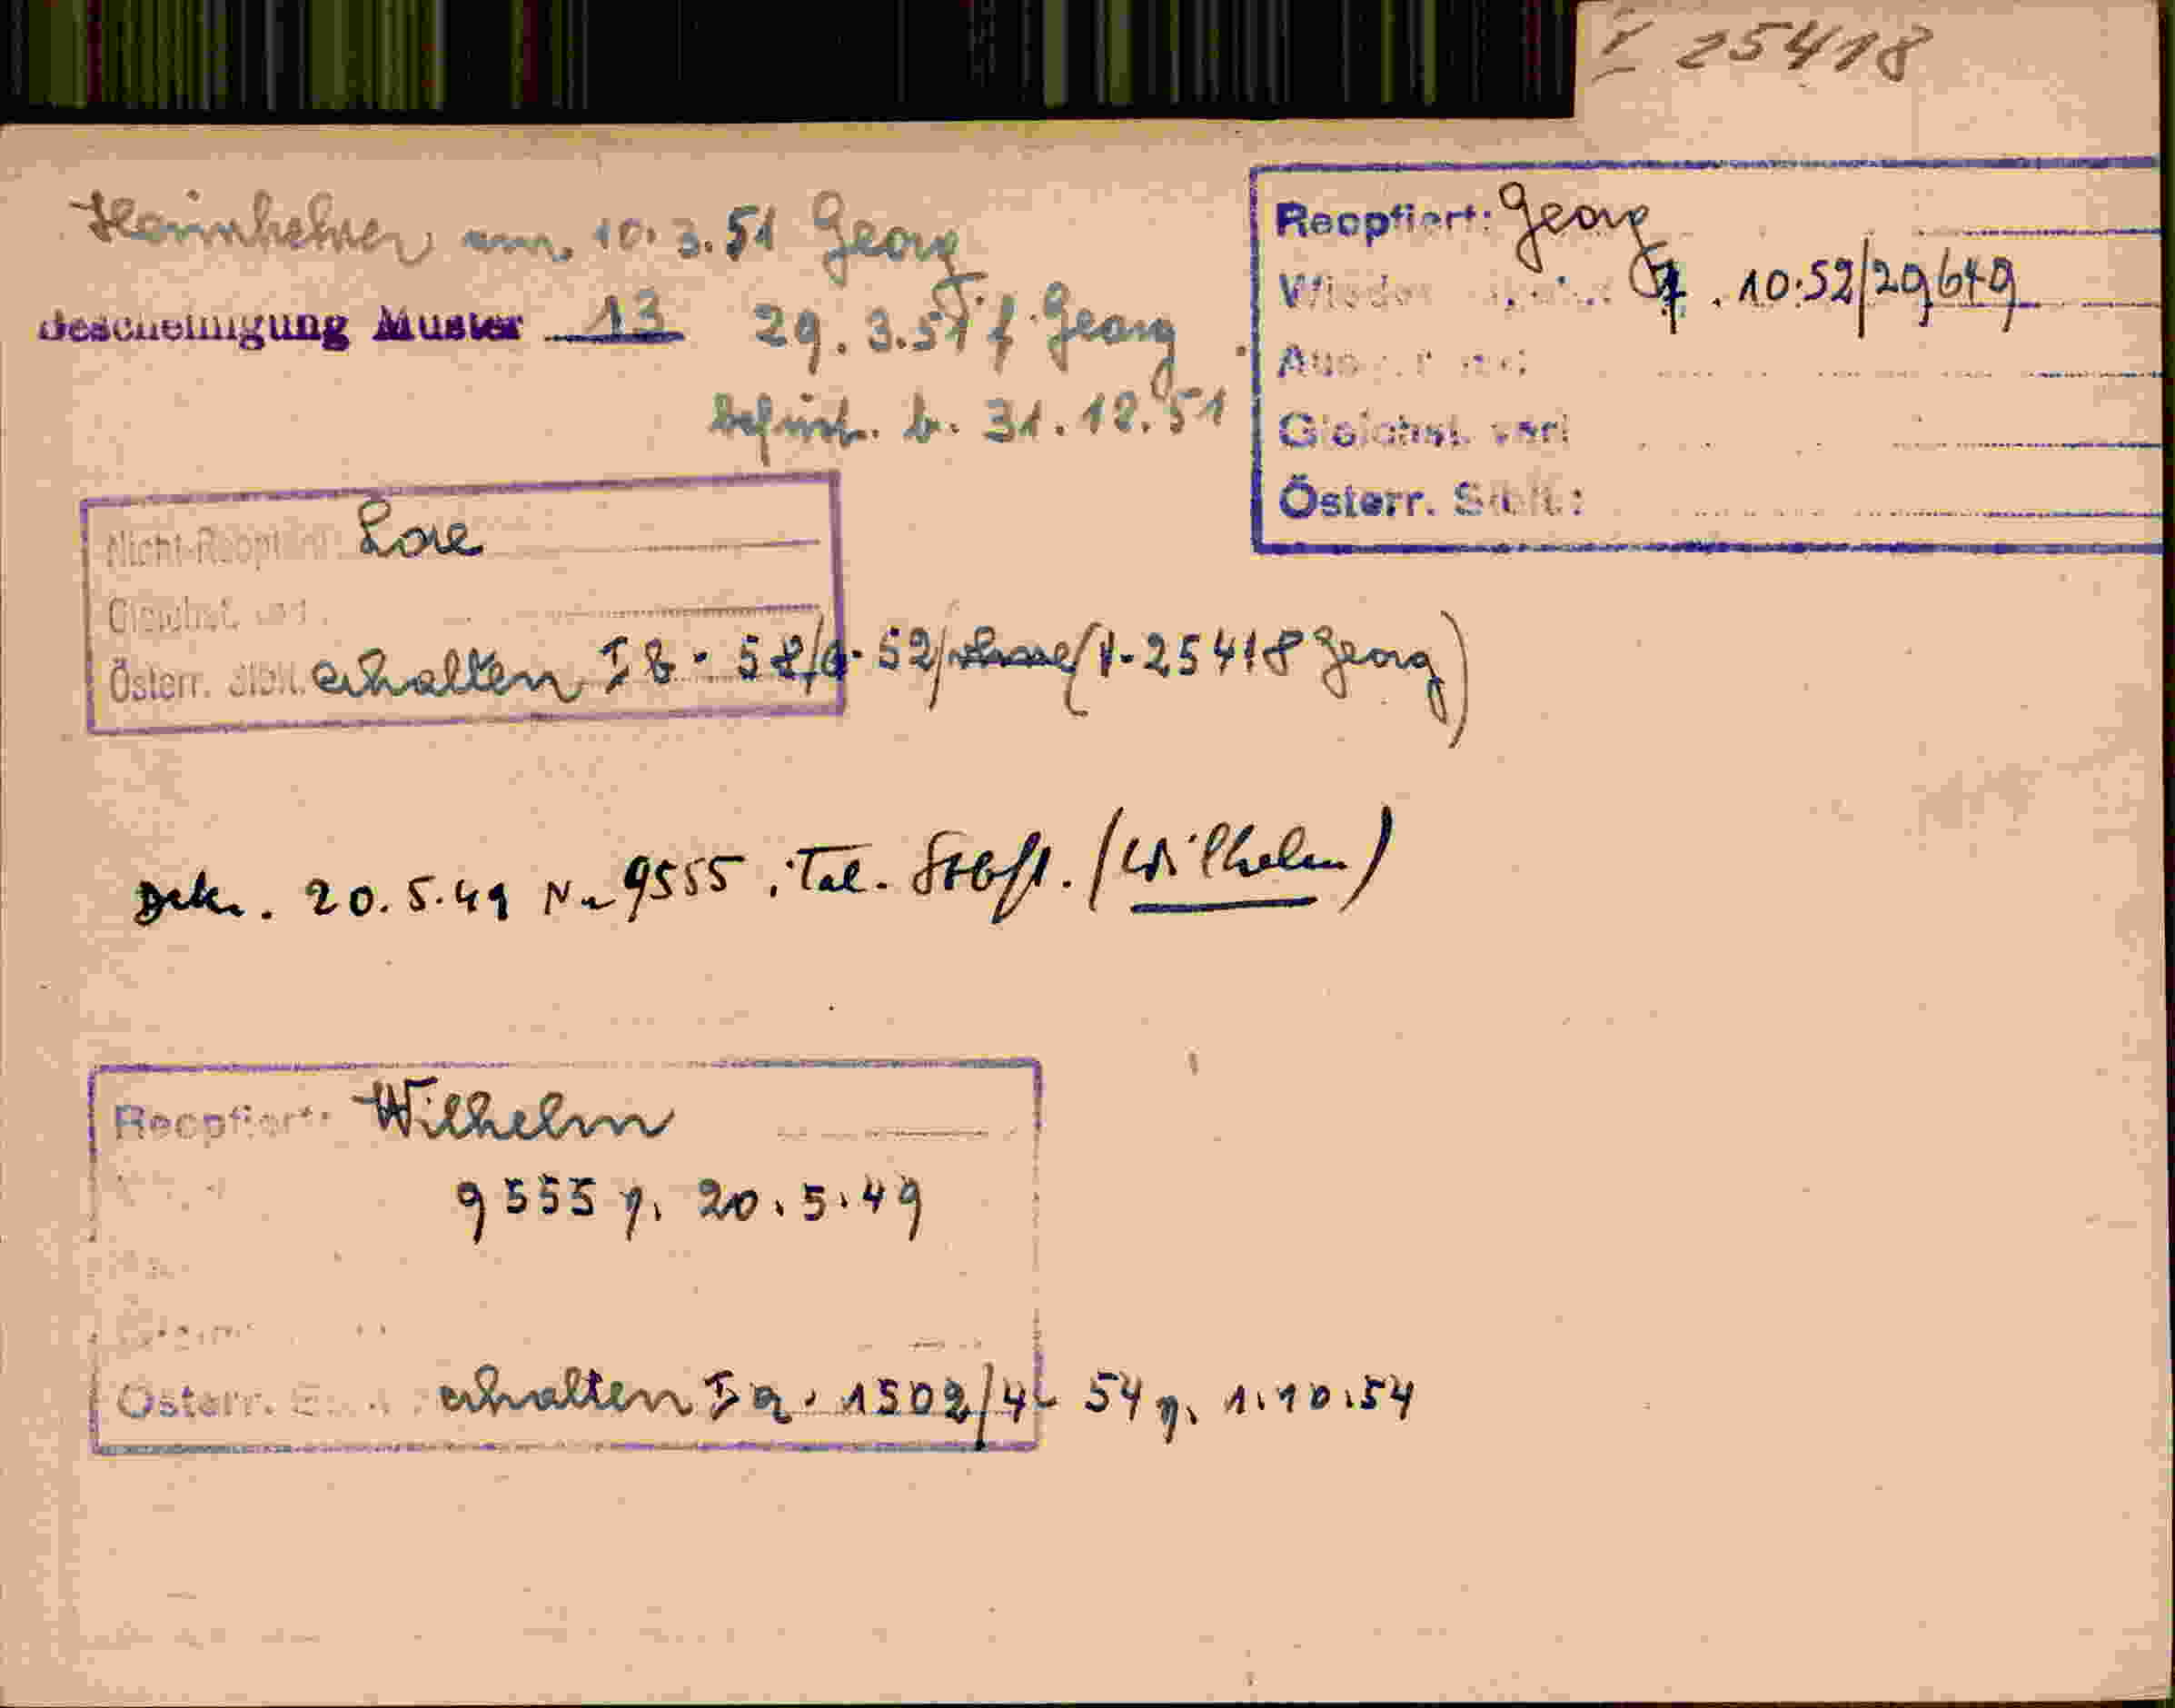 I 25418
Heimkehrer am 10.3.51 Georg
Bescheinigung Muster 13 29.3.51 f. Georg
befrist. b. 31.12.51
Reoptiert: Georg
10.52/29649
Gleichst. verl
Österr. Stbft.:
Nicht-Reoptiert Lore
Gleichst. verl.
Österr. Stbft. erhalten Ib. 58/6.52/ (I-25418 Georg)
Dekr. 20.5.49 Nr 9555 ital. Stbft. (Wilhelm)
Reoptiert: Wilhelm
9555 v. 20.5.49
Österr. erhalten Ia. 1502/4-54 v. 1.10.54